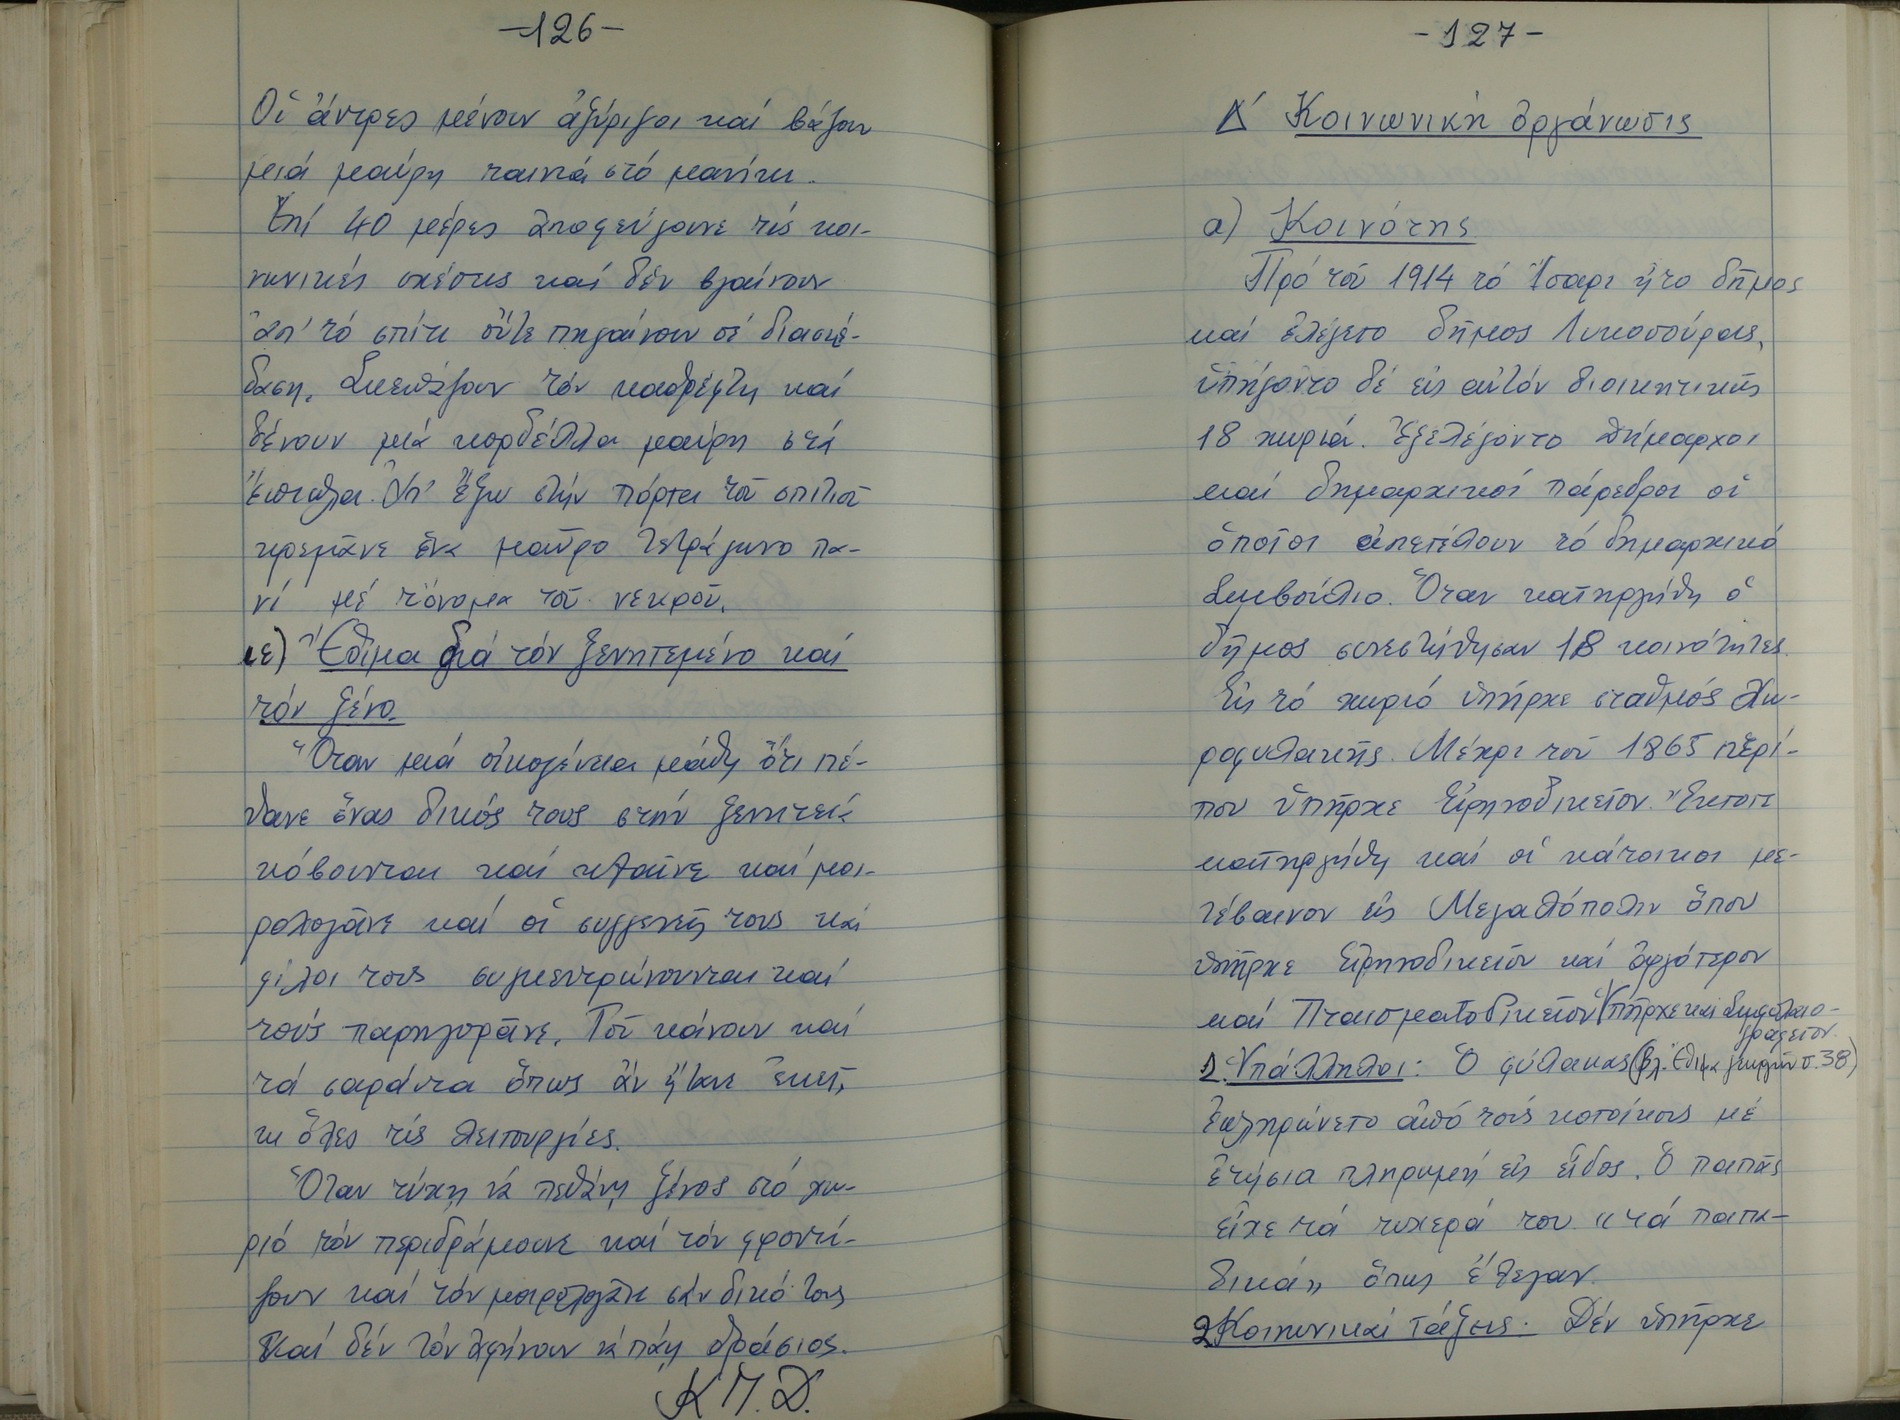 -126-
Οἱ ἄντρες μένουν ἀξύριγοι καί βάζουν
μιά μαύρη ταινία στό μανίκι.
Ἐπί 40 μέρες ἀποφεύγουνε τίς κοι-
νωνικές σχέσεις καί δέν βγαίνουν
ἀπ' τό σπίτι οὔτε πηγαίνουν σέ διασκέ-
δαση. Σκεπάζουν τόν καθρέφτη καί
δένουν μιά κορδέλλα μαύρη στά
ἔπιπλα. Ἀπ' ἔξω στήν πόρτα τοῦ σπιτιοῦ
κρεμᾶνε ἕνα μαῦρο τετράγωνο πα-
νί μέ τὄνομα τοῦ νεκροῦ.
ιε) Ἔθιμα διά τόν ξενητεμένο καί
τόν ξένο.
Ὅταν μιά οἰκογένεια μάθη ὅτι πέ-
θανε ἕνας δικός τους στήν ξενιτειά
κόβονται καί κλαῖνε καί μοι-
ρολογᾶνε καί οἱ συγγενεῖς τους καί
φίλοι τους συγκεντρώνονται καί
τούς παρηγορᾶνε. Τοῦ κάνουν καί
τά σαράντα ὅπως ἄν ἤτανε ἐκεῖ,
κι ὅλες τίς λειτουργίες.
Ὅταν τύχη νά πεθάνη ξένος στό χω-
ριό τόν περιδράμουνε καί τόν φροντί-
ζουν καί τόν μοιρολογᾶνε σάν δικό τους
καί δέν τόν ἀφήνουν νά πάη θράσιος.
Κ Π. Δ.
-127-
Δ΄ Κοινωνική ὀργάνωσις
α) Κοινότης
Πρό τοῦ 1914 τό Ἴσαρι ἦτο δῆμος
καί ἐλέγετο δῆμος Λυκοσούρας,
ὑπήγοντο δέ εἰς αὐτόν διοικητικῶς
18 χωριά. Ἐξελέγοντο δήμαρχοι
καί δημαρχικοί πάρεδροι οἱ
ὁποῖοι ἀπετέλουν τό δημαρχικό
Συμβούλιο. Ὅταν κατηργήθη ὁ
δῆμος συνεστήθησαν 18 κοινότητες.
Εἰς τό χωριό ὑπῆρχε σταθμός Χω-
ροφυλακῆς. Μέχρι τοῦ 1865 περί-
που ὑπῆρχε Εἰρηνοδικεῖον. Ἔκτοτε
κατηργήθη καί οἱ κάτοικοι με-
τέβαινον εἰς Μεγαλόπολιν ὅπου
ὑπῆρχε Εἰρηνοδικεῖον καί ἀργότερον
καί Πταισματοδικεῖον. Ὑπῆρχε καί Συμβολαιο-
γραφεῖον.
1. Ὑπάλληλοι: Ὁ φύλακας (βλ. Ἔθιμα γεωργῶν σ. 38)
ἐπληρώνετο ἀπό τούς κατοίκους μέ
ἐτήσια πληρωμή εἰς εἶδος. Ὁ παπάς
εἶχε τά τυχερά του "τά παπα-
δικά" ὅπως ἔλεγαν.
2. Κοινωνικαί τάξεις. Δέν ὑπῆρχε